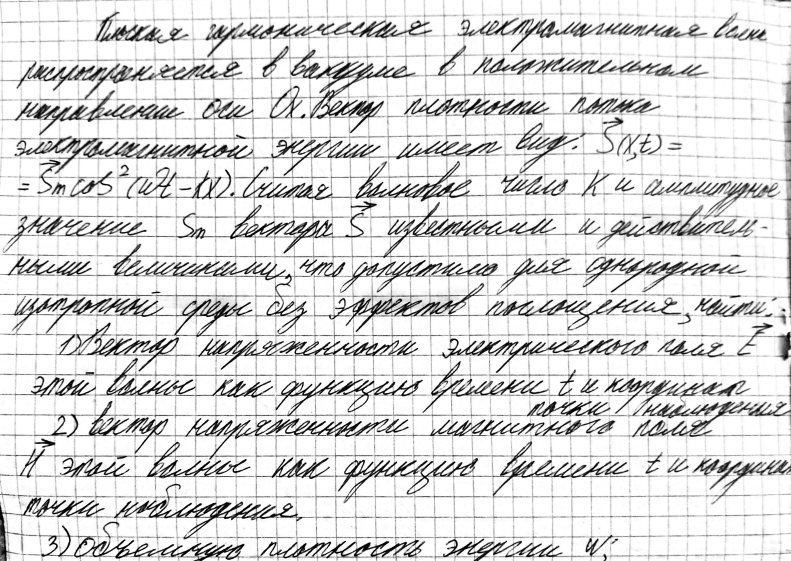 Плоская гармоническая электромагнитная волна
распространяется в вакууме в положительном
направлении оси Ox. Вектор плотности потока
электромагнитной энергии имеет вид: S⃗(x,t) =
= S⃗m cos²(ωt - kx). Считая волновое число K и амплитудное
значение Sm вектора S⃗ известными и действитель-
ными величинами, что допустимо для однородной
изотропной среды без эффектов поглощения, найти:
1) Вектор напряженности электрического поля E⃗
этой волны как функцию времени t и координат
точки наблюдения
2) вектор напряженности магнитного поля
H⃗ этой волны как функцию времени t и координат
точки наблюдения.
3) Объемную плотность энергии w;